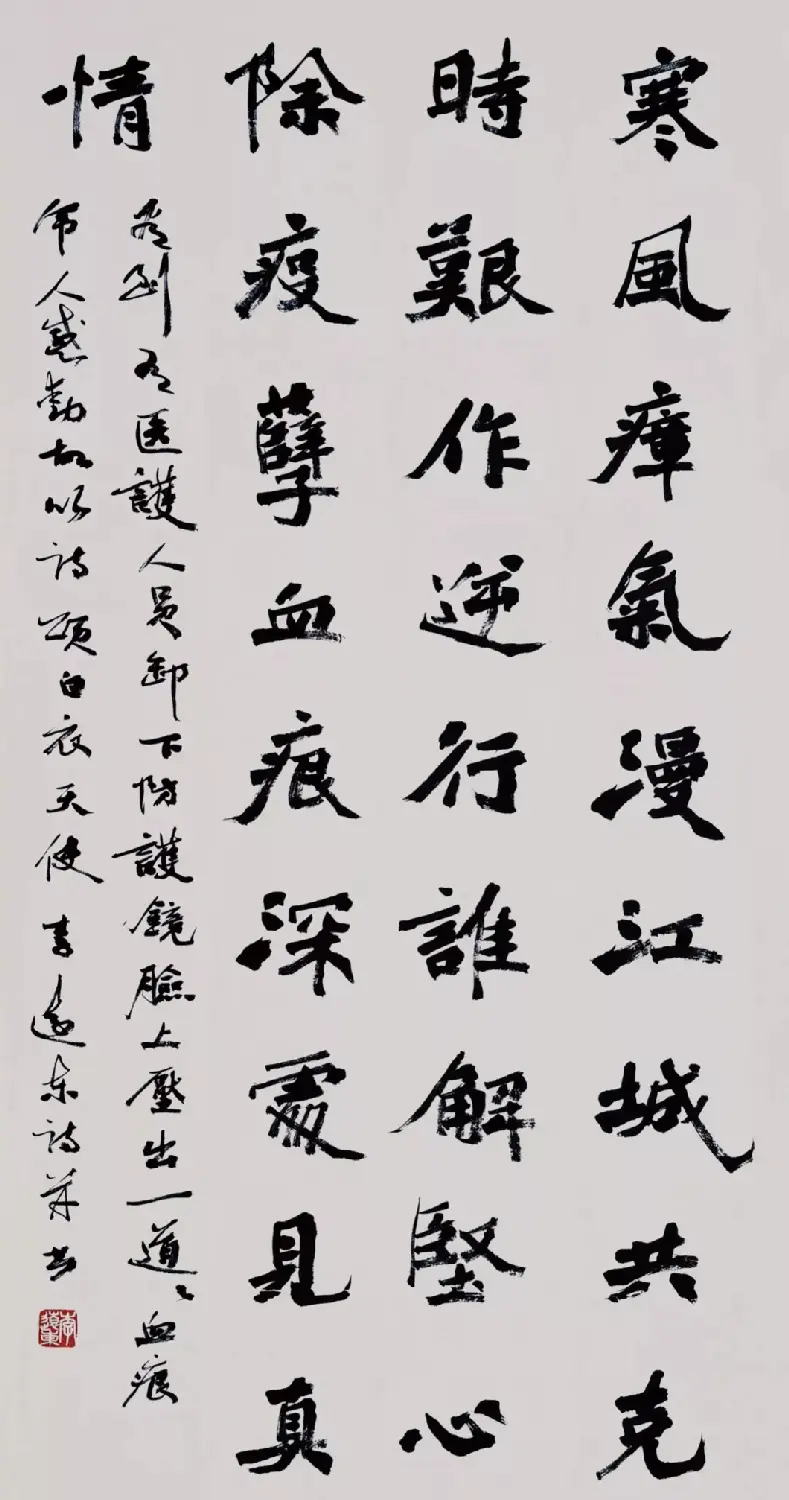 寒風瘴氣漫江城共克
時艱作逆行誰解堅心
除疫孽血痕深處見真
情
看到有醫護人員卸下防護鏡臉上壓出一道〻血痕
令人感動故以詩頌白衣天使 李遠東詩并書
李遠東